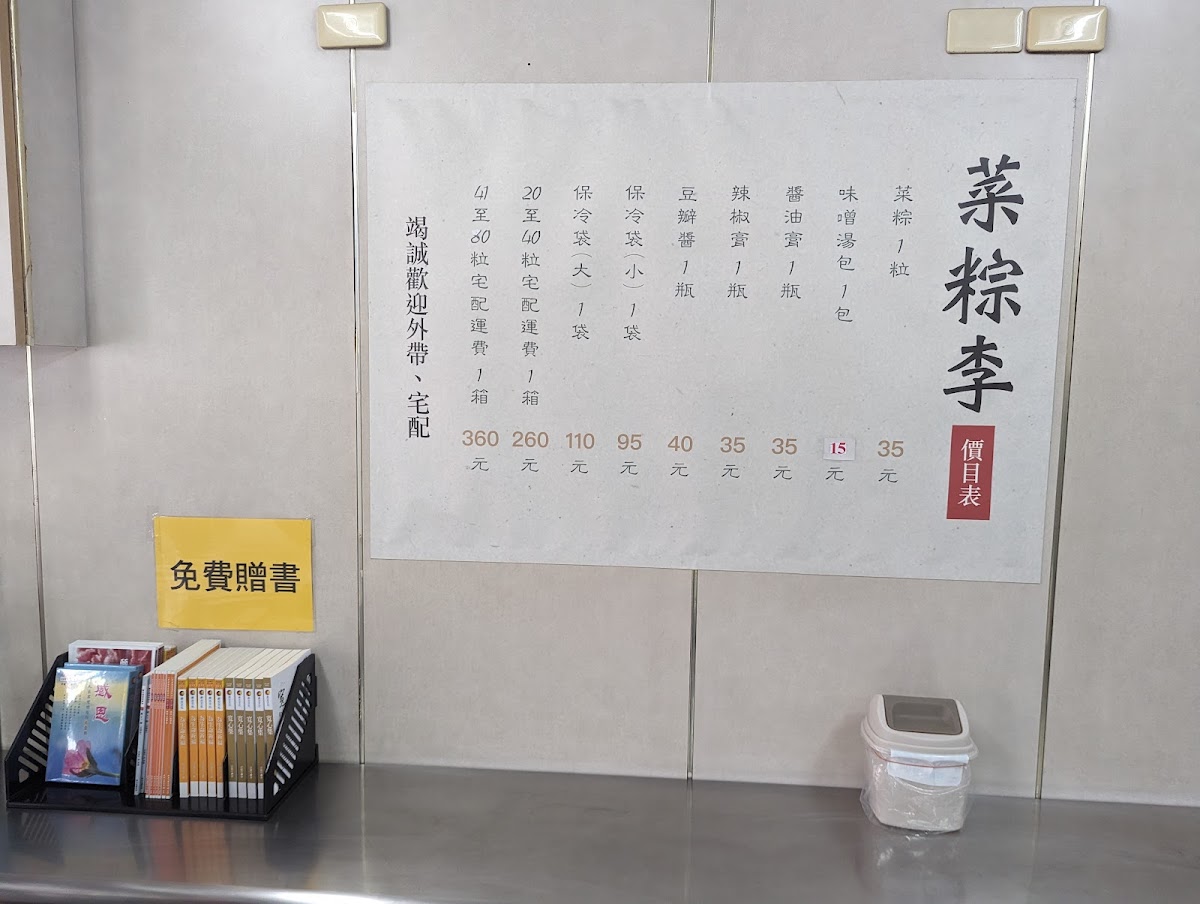 菜粽李
價目表
菜粽1粒
35元
味噌湯包1包
15元
醬油膏1瓶
35元
辣椒膏1瓶
35元
豆瓣醬1瓶
40元
保冷袋(小)1袋
95元
保冷袋(大)1袋
110元
20至40粒宅配運費1箱
260元
41至60粒宅配運費1箱
360元
竭誠歡迎外帶、宅配
免費贈書
感恩